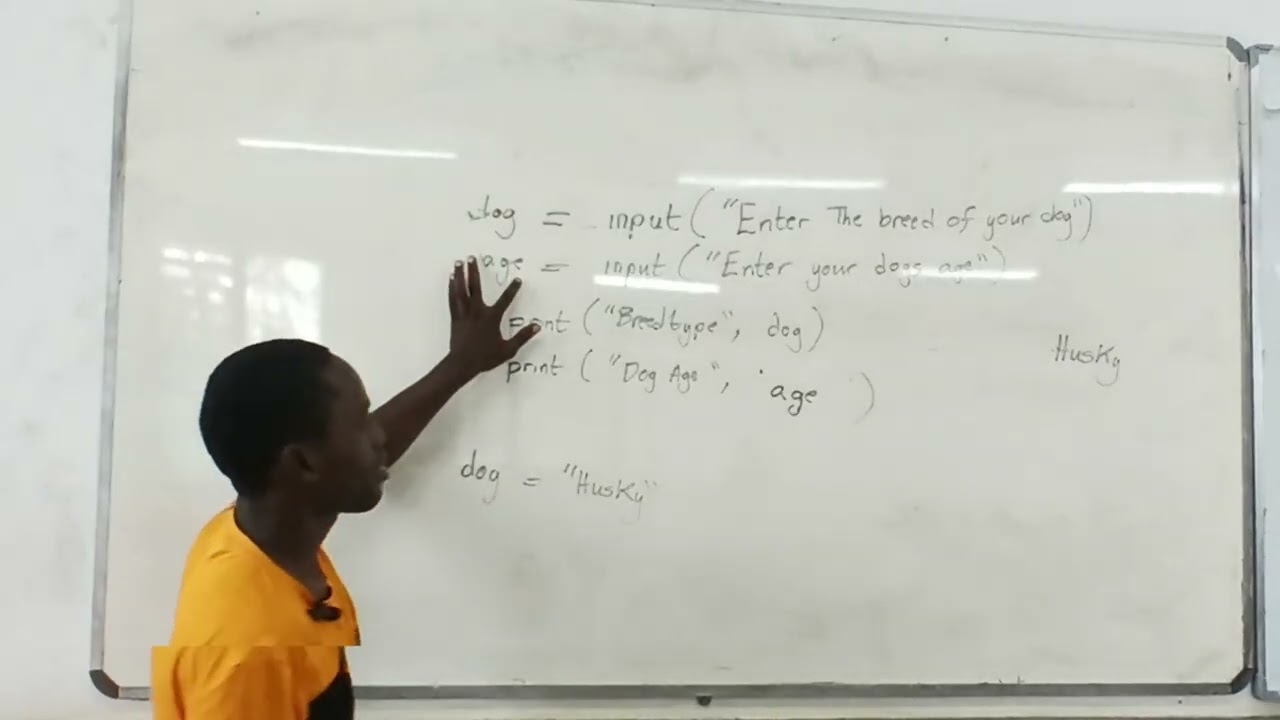 dog = input("Enter The breed of your dog")
age = input("Enter your dogs age")
print ("Breedtype", dog)
print ("Dog Age", age)
Husky
dog = "Husky"